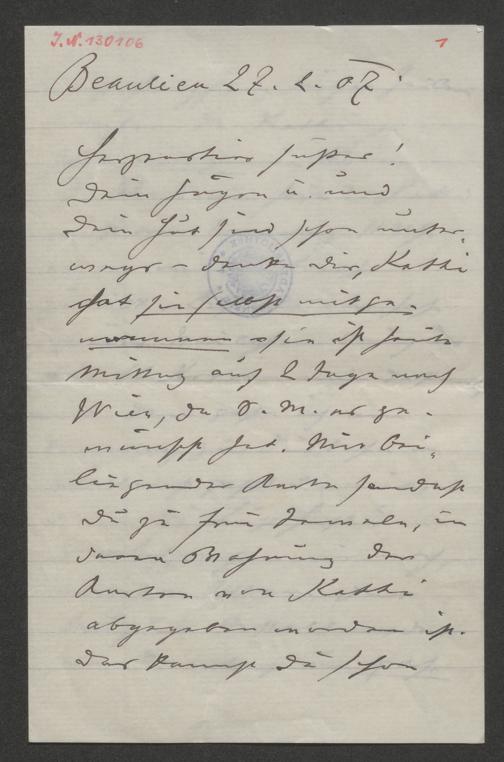 J.N. 130106
1
Beaulieu 27. 2. 07.
süßer!
Dein u. und
Dein Hut sind schon unter-
wegs – danke Dir, Kathi
hat sie selbst mitge-
nommen sie ist heute
Mittag auf 2 Tage nach
Wien, da S. M. es ge-
wünscht hat. Mit bei-
liegender Karte sendest
Du zu Frau, in
deren Wohnung der
Karton von Kathi
abgegeben worden ist.
Das kannst Du schon